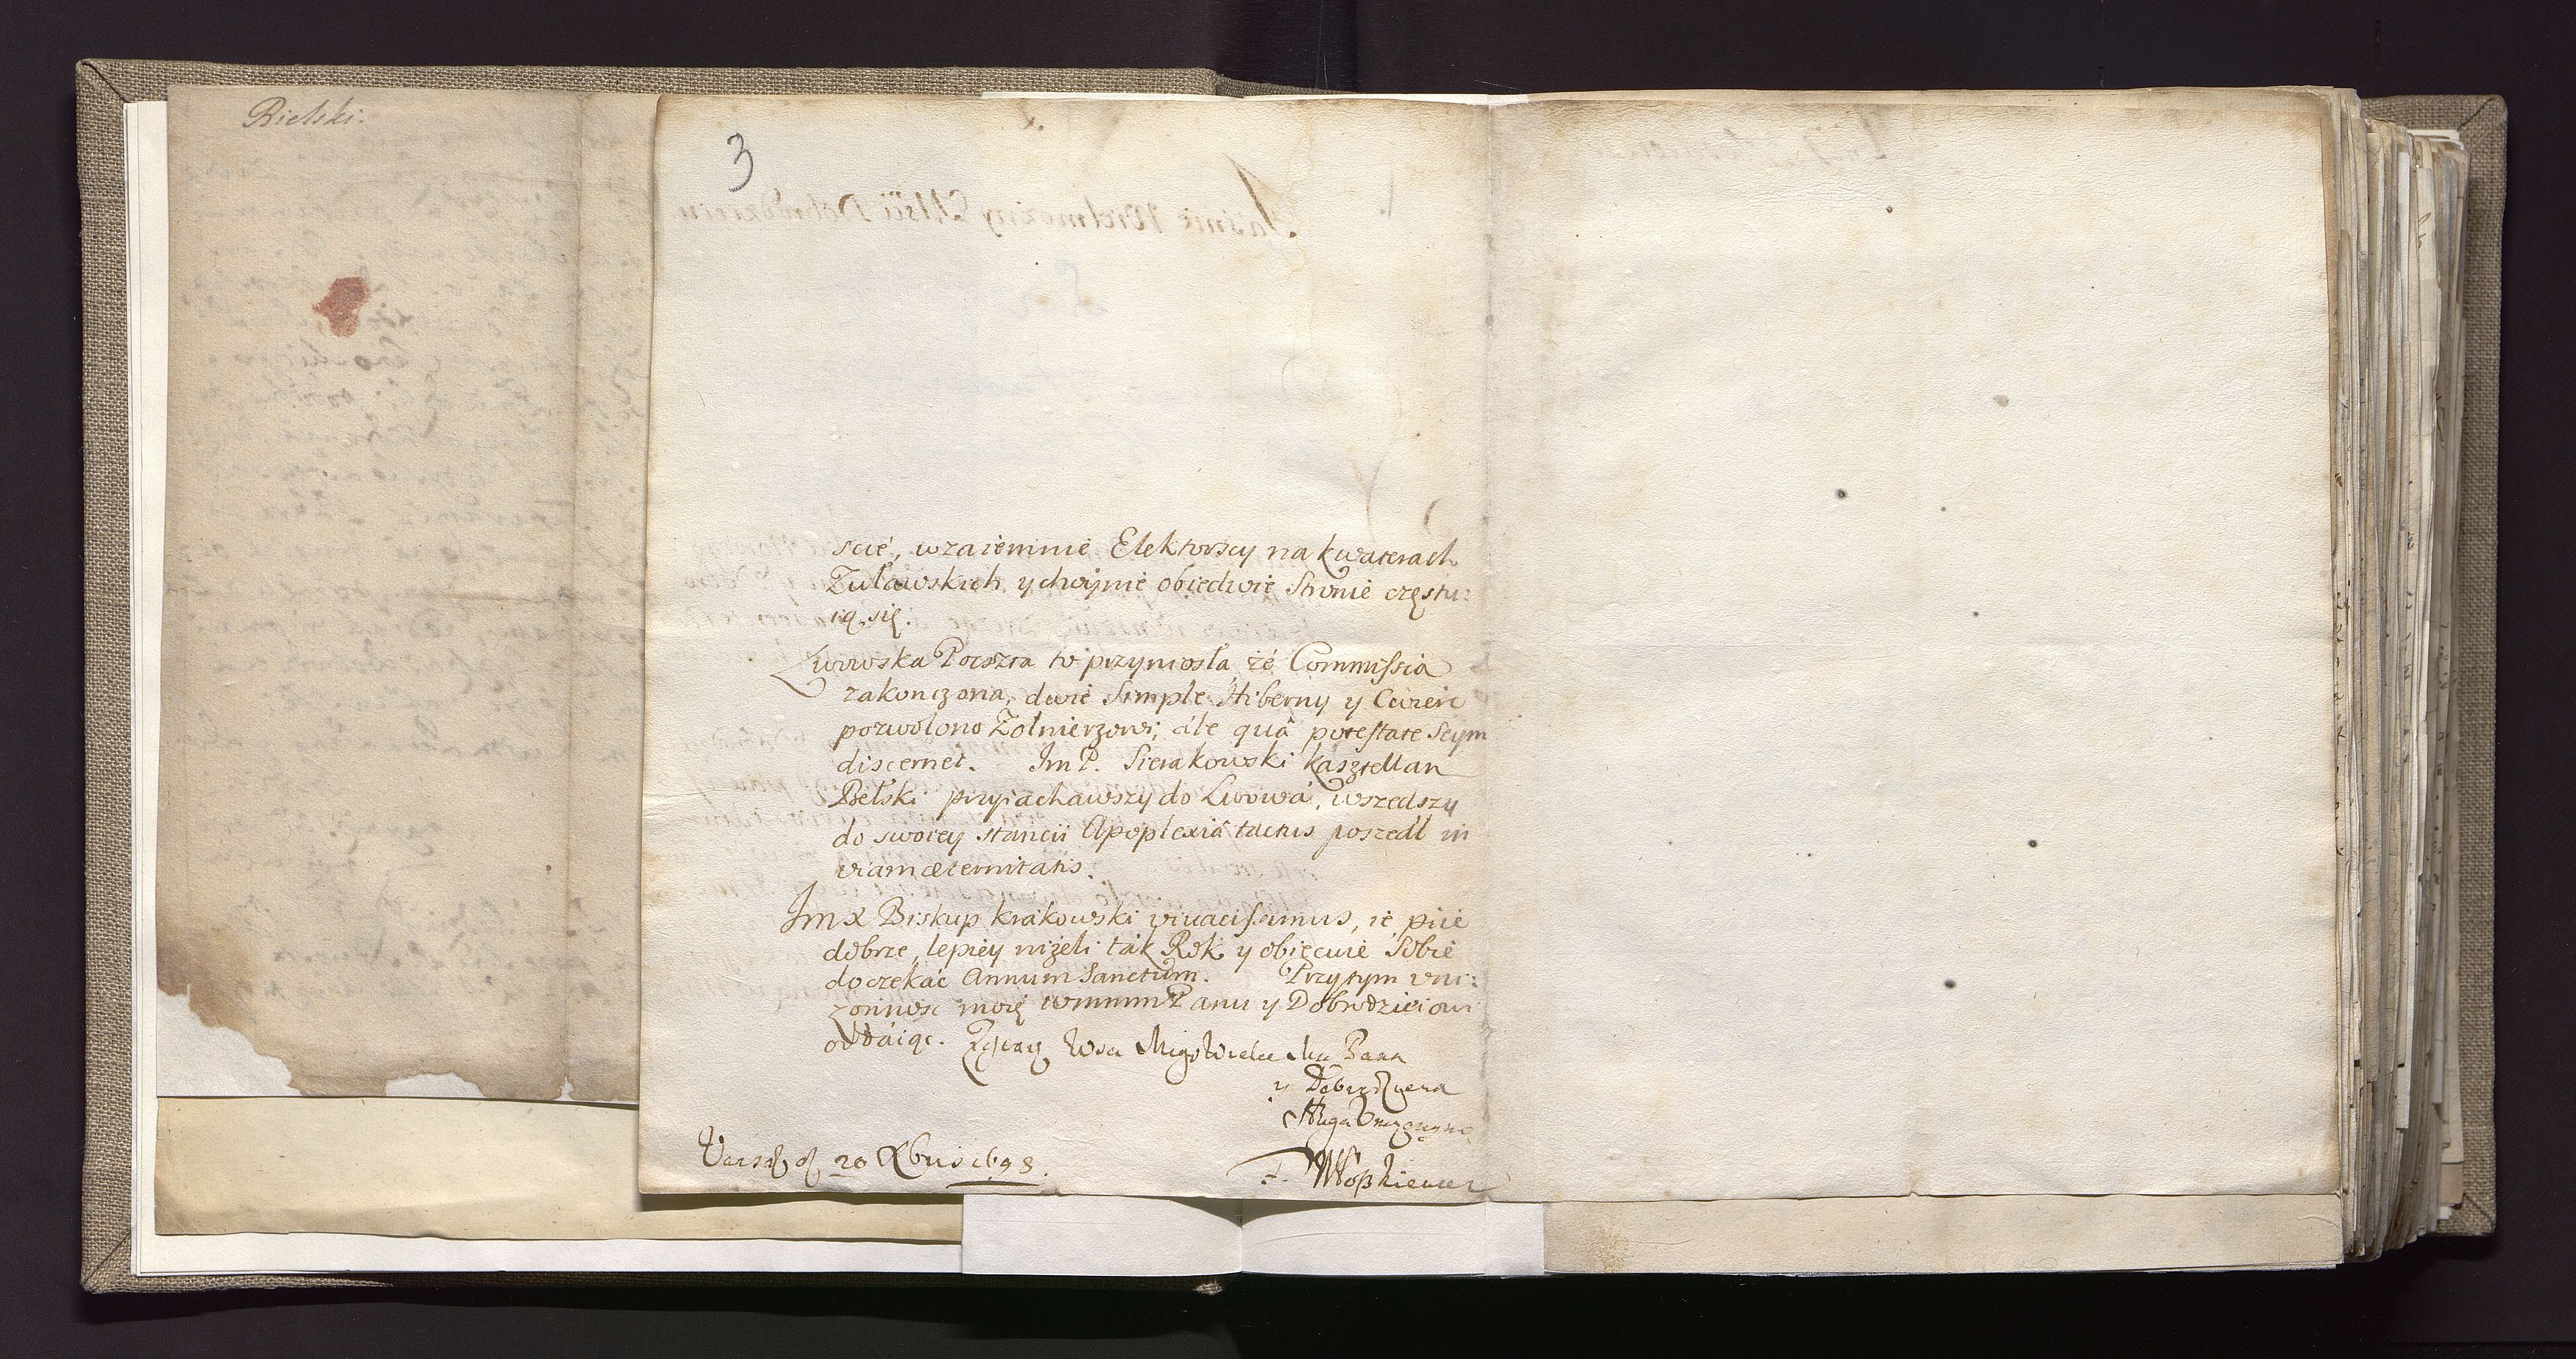 Bielski.
3
scie, wzaiemnie Elektorscy na kwaterach
Żuławskich, y choynie obiedwie stronie częstu:
ią się.
Lwowska Poczta to przyniosła, że Commissia
zakonczona, dwie simple Hiberny y Cwierc
pozwolono Żołnierzowi; ále quâ potestate Seym
discernet. Im P. Sierakowski Kasztellan
Bełski przyiachawszy do Lwowá, wszedszy
do swoiey stancii Apoplexiâ tactus poszedł in
viam æternitatis.
Im X Biskup krakowski vivacissimus, ie, piie
dobrze, lepiey niżeli tak Rok y obiecuie sobie
doczekać Annum Sanctum. Przytym vni:
zonność moię wmmm Panu y Dobrodzieiowi
oddáiąc.
Pana
y Dobrodzieia
sługa
20 Xbris 1698.
F.